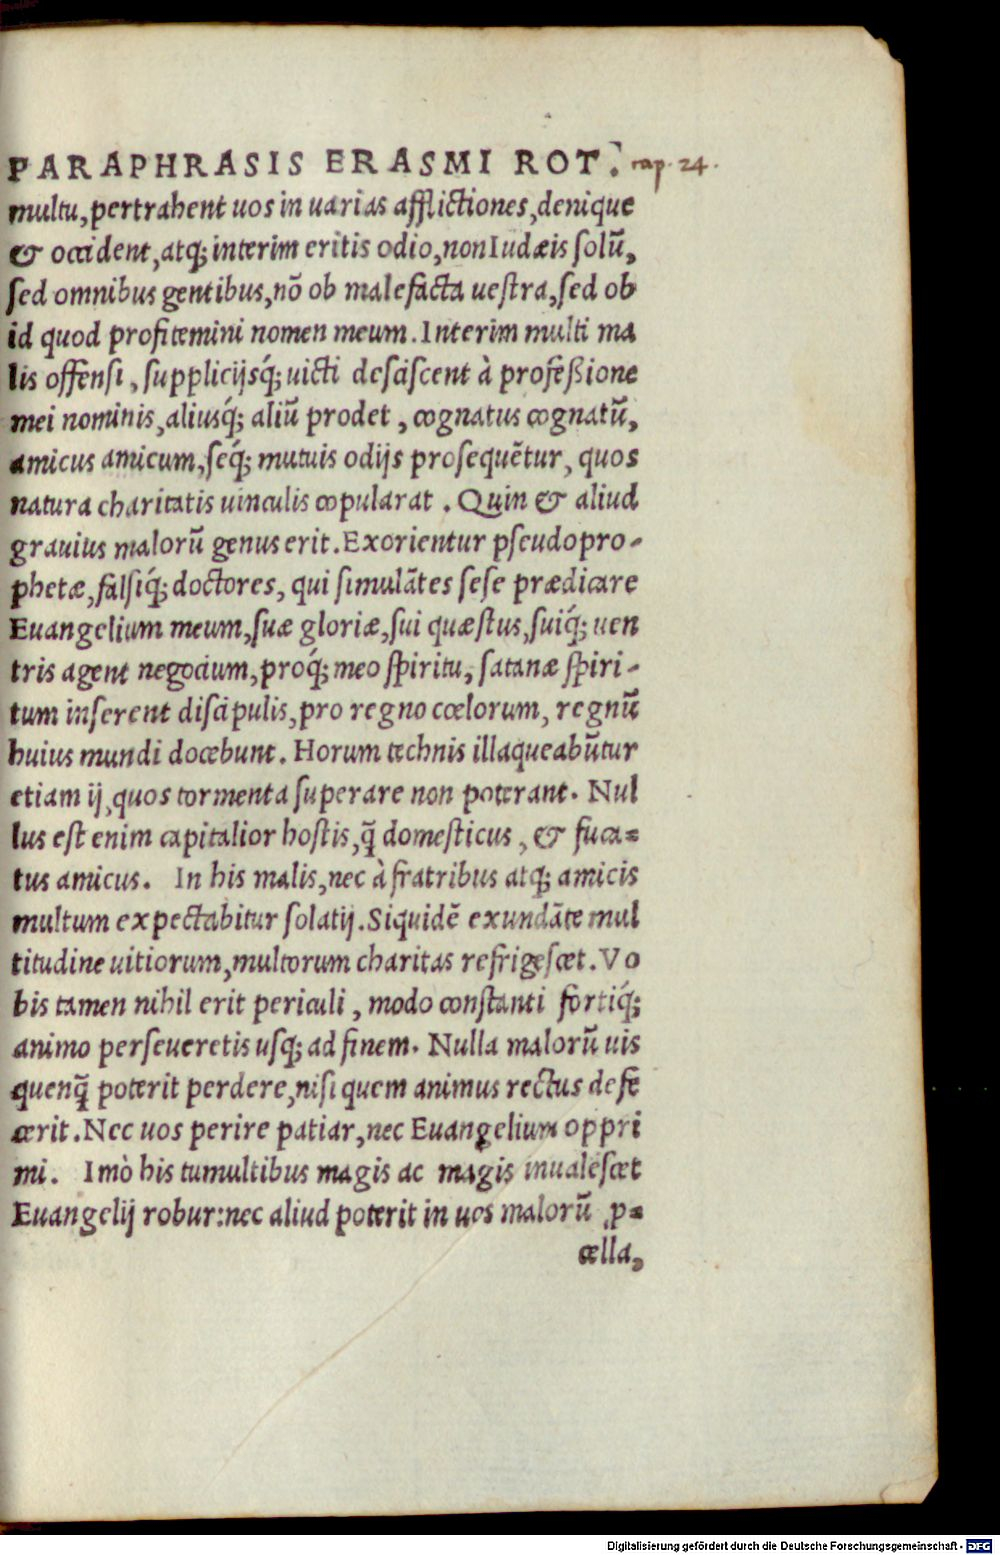 PARAPHRASIS ERASMI ROT. cap. 24.
multu, pertrahent uos in uarias afflictiones, denique
& occident, atq; interim eritis odio, non Iudæis solū,
sed omnibus gentibus, nō ob malefacta uestra, sed ob
id quod profitemini nomen meum. Interim multi ma
lis offensi, supplicijsq́; uicti desciscent à profeßione
mei nominis, aliusq́; aliū prodet, cognatus cognatū,
amicus amicum, seq́; mutuis odijs prosequētur, quos
natura charitatis uinculis copularat. Quin & aliud
grauius malorū genus erit. Exorientur pseudopro-
phetæ, falsiq́; doctores, qui simulātes sese prædicare
Euangelium meum, suæ gloriæ, sui quæstus, suiq́; uen
tris agent negocium, proq́; meo spiritu, satanæ spiri-
tum inserent discipulis, pro regno cœlorum, regnū
huius mundi docebunt. Horum technis illaqueabūtur
etiam ij, quos tormenta superare non poterant. Nul
lus est enim capitalior hostis, q̄ domesticus, & fuca-
tus amicus. In his malis, nec à fratribus atq; amicis
multum expectabitur solatij. Siquidē exundāte mul
titudine uitiorum, multorum charitas refrigescet. Vo
bis tamen nihil erit periculi, modo constanti fortiq́;
animo perseueretis usq; ad finem. Nulla malorū uis
quenq̄ poterit perdere, nisi quem animus rectus defe
cerit. Nec uos perire patiar, nec Euangelium oppri
mi. Imò his tumultibus magis ac magis inualescet
Euangelij robur: nec aliud poterit in uos malorū p-
cella,
Digitalisierung gefördert durch die Deutsche Forschungsgemeinschaft - DFG